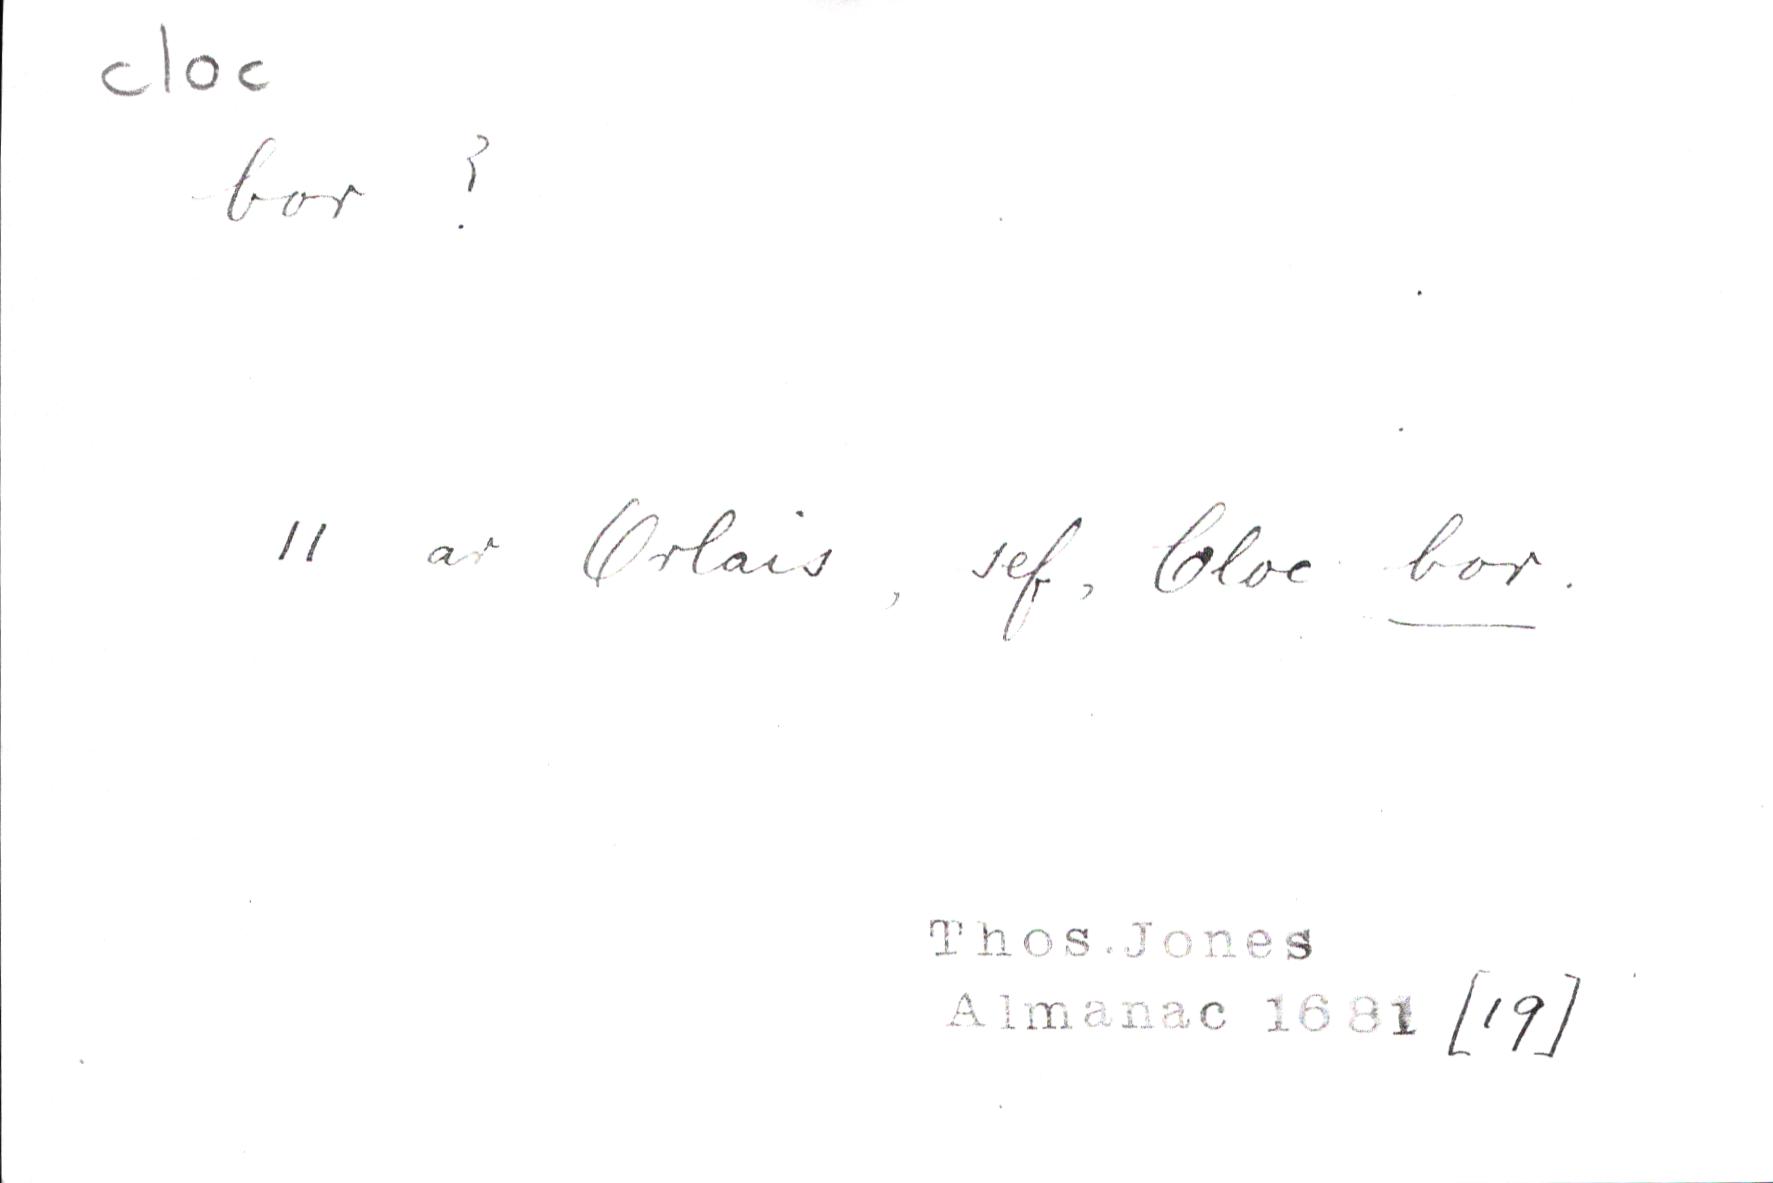 cloc
bor ?
11 ar Orlais, sef, Cloc bor.
Thos. Jones
Almanac 1681 [19]